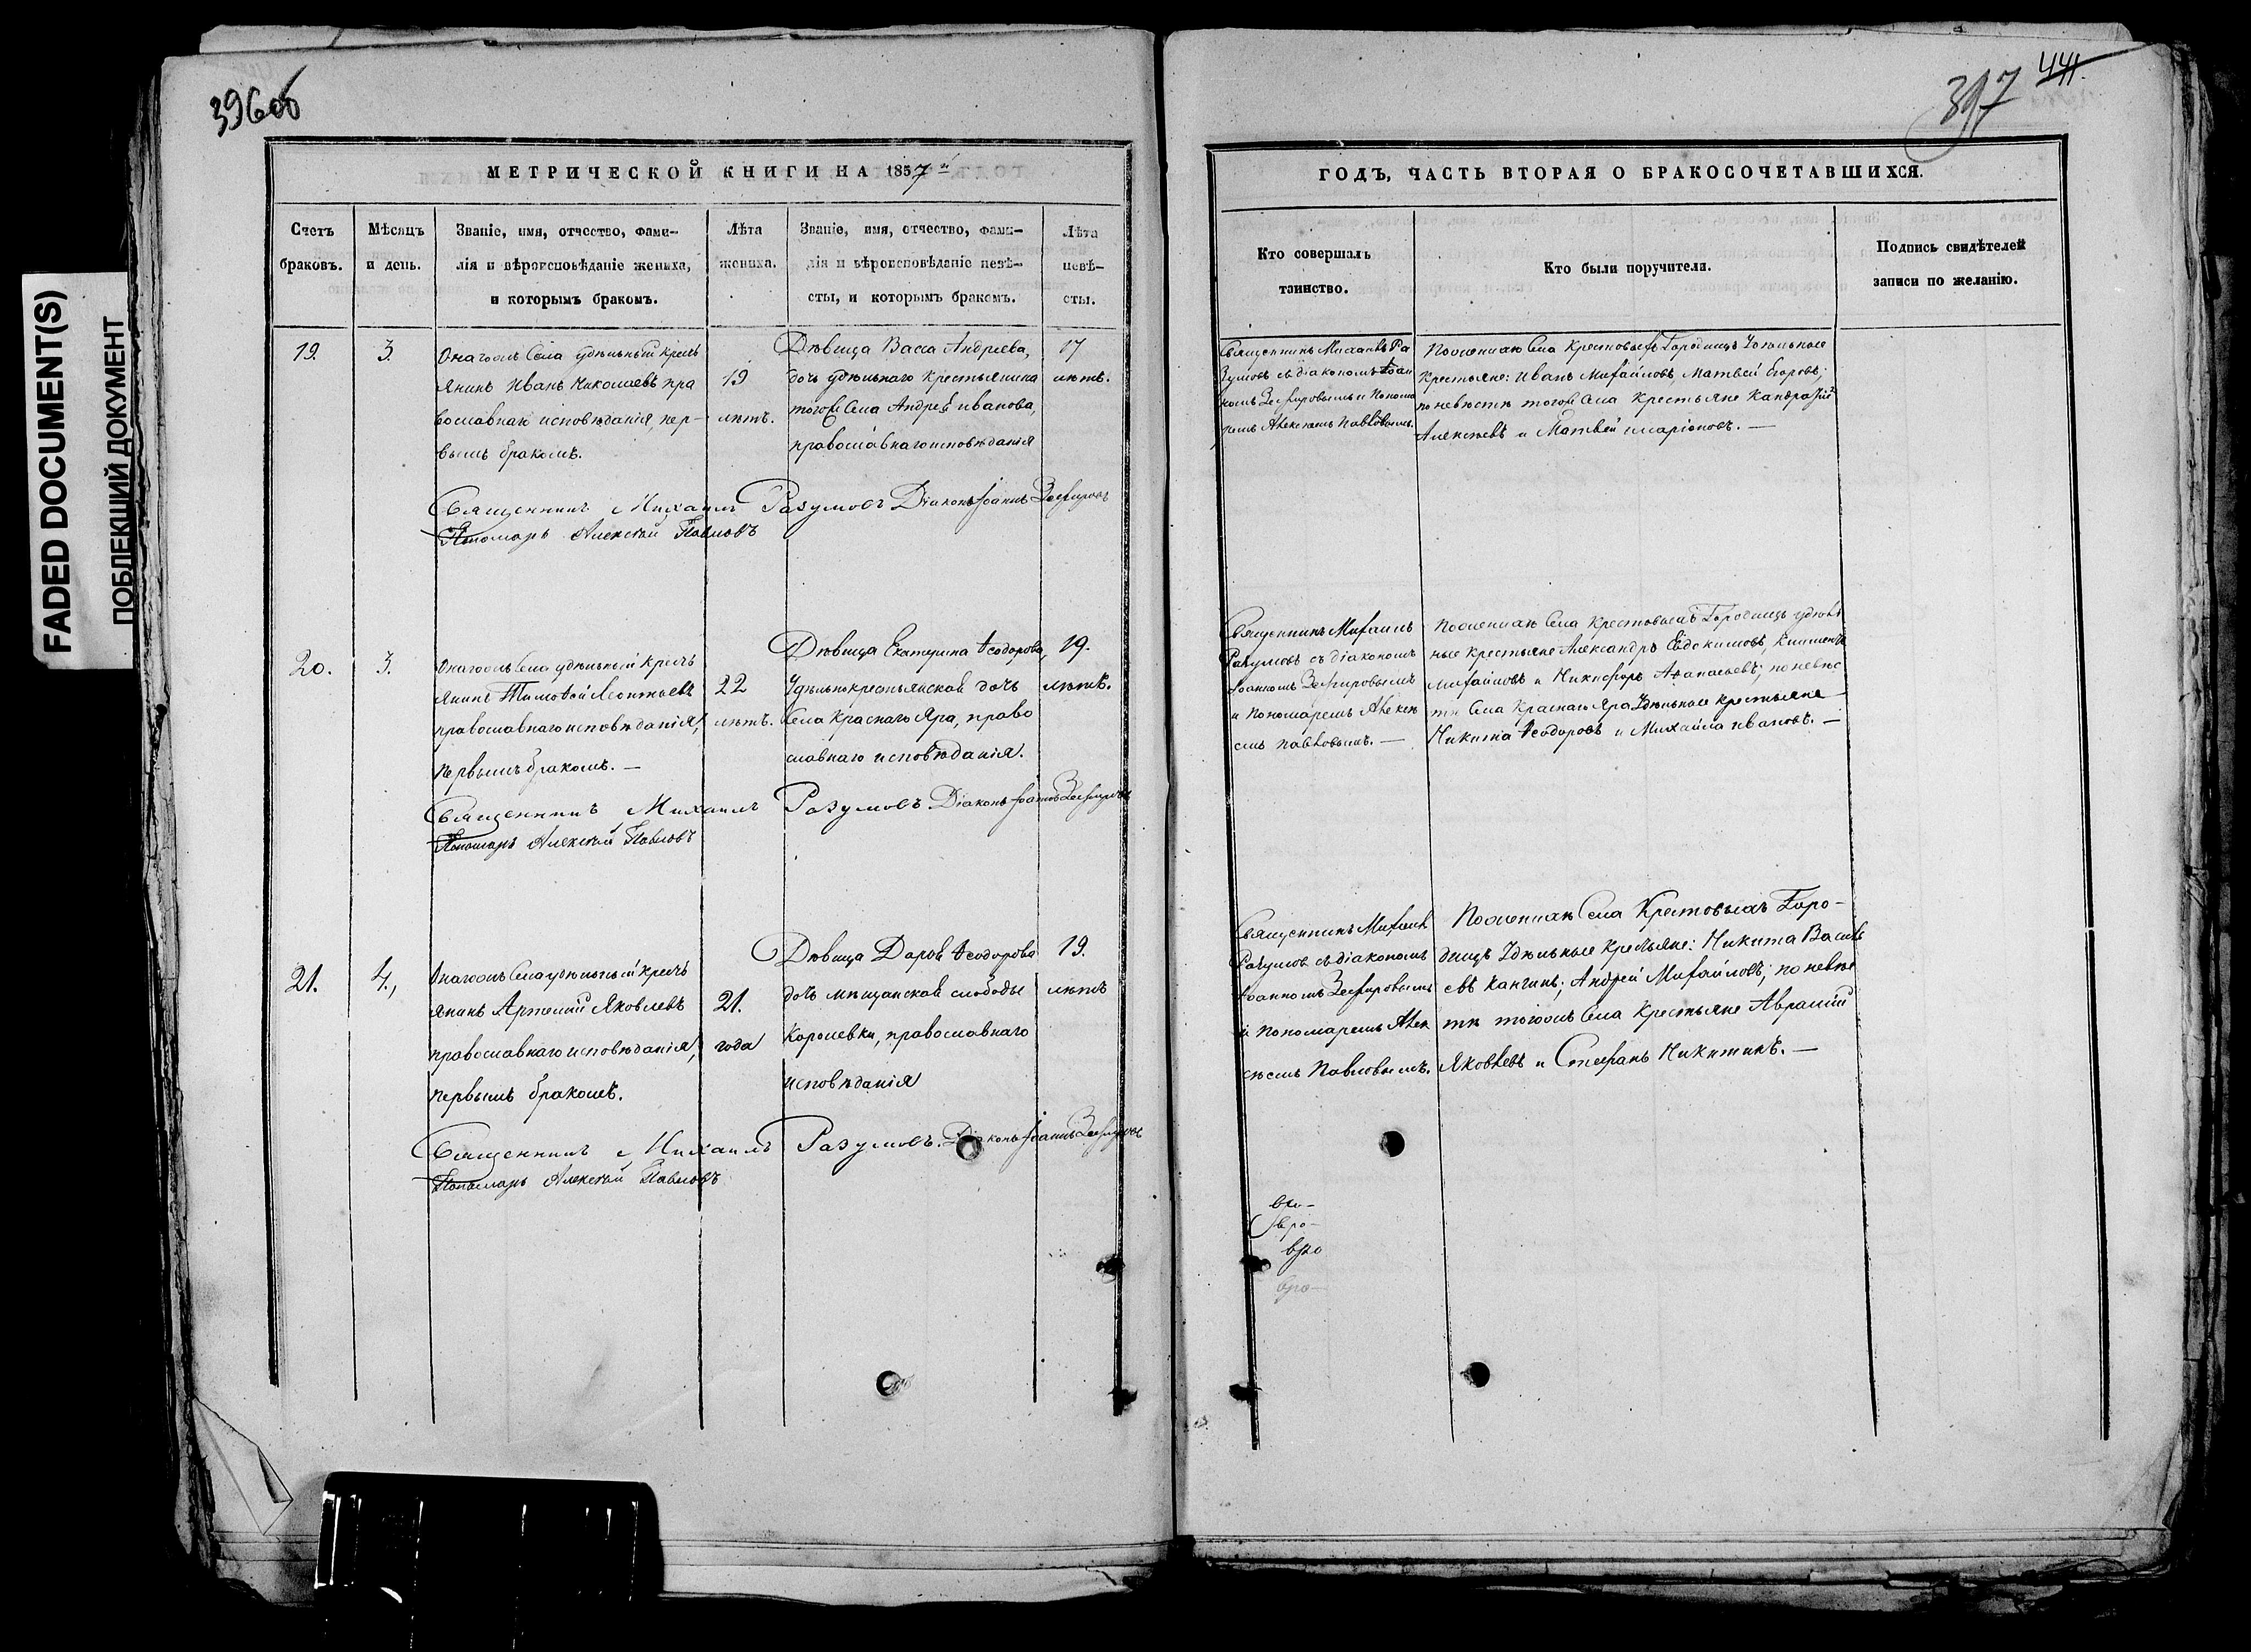 396об
МЕТРИЧЕСКОЙ КНИГИ НА 1857й
Счетъ браковъ.
Мѣсяцъ и день.
Званіе, имя, отчество, фами-
лія и вѣроисповѣданіе жениха,
и которымъ бракомъ.
Лѣта
жениха.
Званіе, имя, отчество, фами-
лія и вѣроисповѣданіе невѣ-
сты, и которымъ бракомъ.
Лѣта
невѣ-
сты.
19.
3.
Онагожъ Села удѣльный крестъ
янинъ Иванъ Николаевъ пра
вославнаго исповѣданія, пер-
вымъ бракомъ.
19
лѣтъ.
Дѣвица Васса Андреева,
дочь удѣльнаго крестьянина
тогожъ Села Андрея Иванова,
православнаго исповѣданія
17
лѣтъ.
Священникъ Михаилъ Разумовъ Діаконъ Іоаннъ Зефировъ
Пономарь Алексѣй Павловъ
20.
3.
Онагожъ Села удѣльный крестъ
янинъ Тимофей Леонтьевъ
православнаго исповѣданія,
первымъ бракомъ. —
22
лѣтъ.
Дѣвица Екатерина Ѳеодорова,
Удѣльнокрестьянская дочь
Села Краснаго Яра, право
славнаго исповѣданія.
19.
лѣтъ.
Священникъ Михаилъ Разумовъ Діаконъ Іоаннъ Зефировъ
Пономарь Алексѣй Павловъ
21.
4.,
Онагожъ Села удѣльный крестъ
янинъ Артемій Яковлевъ
православнаго исповѣданія,
первымъ бракомъ.
21.
года
Дѣвица Дарья Ѳеодорова
дочь мѣщанская слободы
Королевки, православнаго
исповѣданія
19.
лѣтъ
Священникъ Михаилъ Разумовъ. Діаконъ Іоаннъ Зефировъ
Пономарь Алексѣй Павловъ
397 441.
ГОДЪ, ЧАСТЬ ВТОРАЯ О БРАКОСОЧЕТАВШИХСЯ.
Кто совершалъ
таинство.
Кто были поручители.
Подпись свидѣтелей
записи по желанію.
Священникъ Михаилъ Ра
зумовъ съ діакономъ Іоан
номъ Зефировымъ и Понома
ремъ Алексѣемъ Павловымъ.
По женихѣ Села Крестовыхъ Городищъ Удѣльные
Крестьяне: Иванъ Михайловъ, Матвей Егоровъ;
по невѣстѣ тогожъ Села Крестьяне
Алексѣевъ и Матвей Иларіоновъ. —
Священникъ Михаилъ
Разумовъ съ діакономъ
Іоанномъ Зефировымъ
и Пономаремъ Алексѣ
емъ Павловымъ. —
По женихѣ Села Крестовыхъ Городищъ удѣль
ные крестьяне Александръ Евдокимовъ,
Михайловъ и Никифоръ Афанасьевъ; по невѣс
тѣ Села Краснаго Яра Удѣльные крестьяне
Никита Ѳеодоровъ и Михайла Ивановъ. —
Священникъ Михаилъ
Разумовъ съ діакономъ
Іоанномъ Зефировымъ
и Пономаремъ Алек
сѣемъ Павловымъ.
По женихѣ Села Крестовыхъ Горо-
дищъ Удѣльные Крестьяне: Никита Василь
евъ Кангинъ; Андрей Михайловъ; по невѣс
тѣ тогожъ Села Крестьяне Аврамій
Яковлевъ и Стефанъ Никитинъ. —
вро
FADED DOCUMENT(S)
ПОБЛЕКШИЙ ДОКУМЕНТ